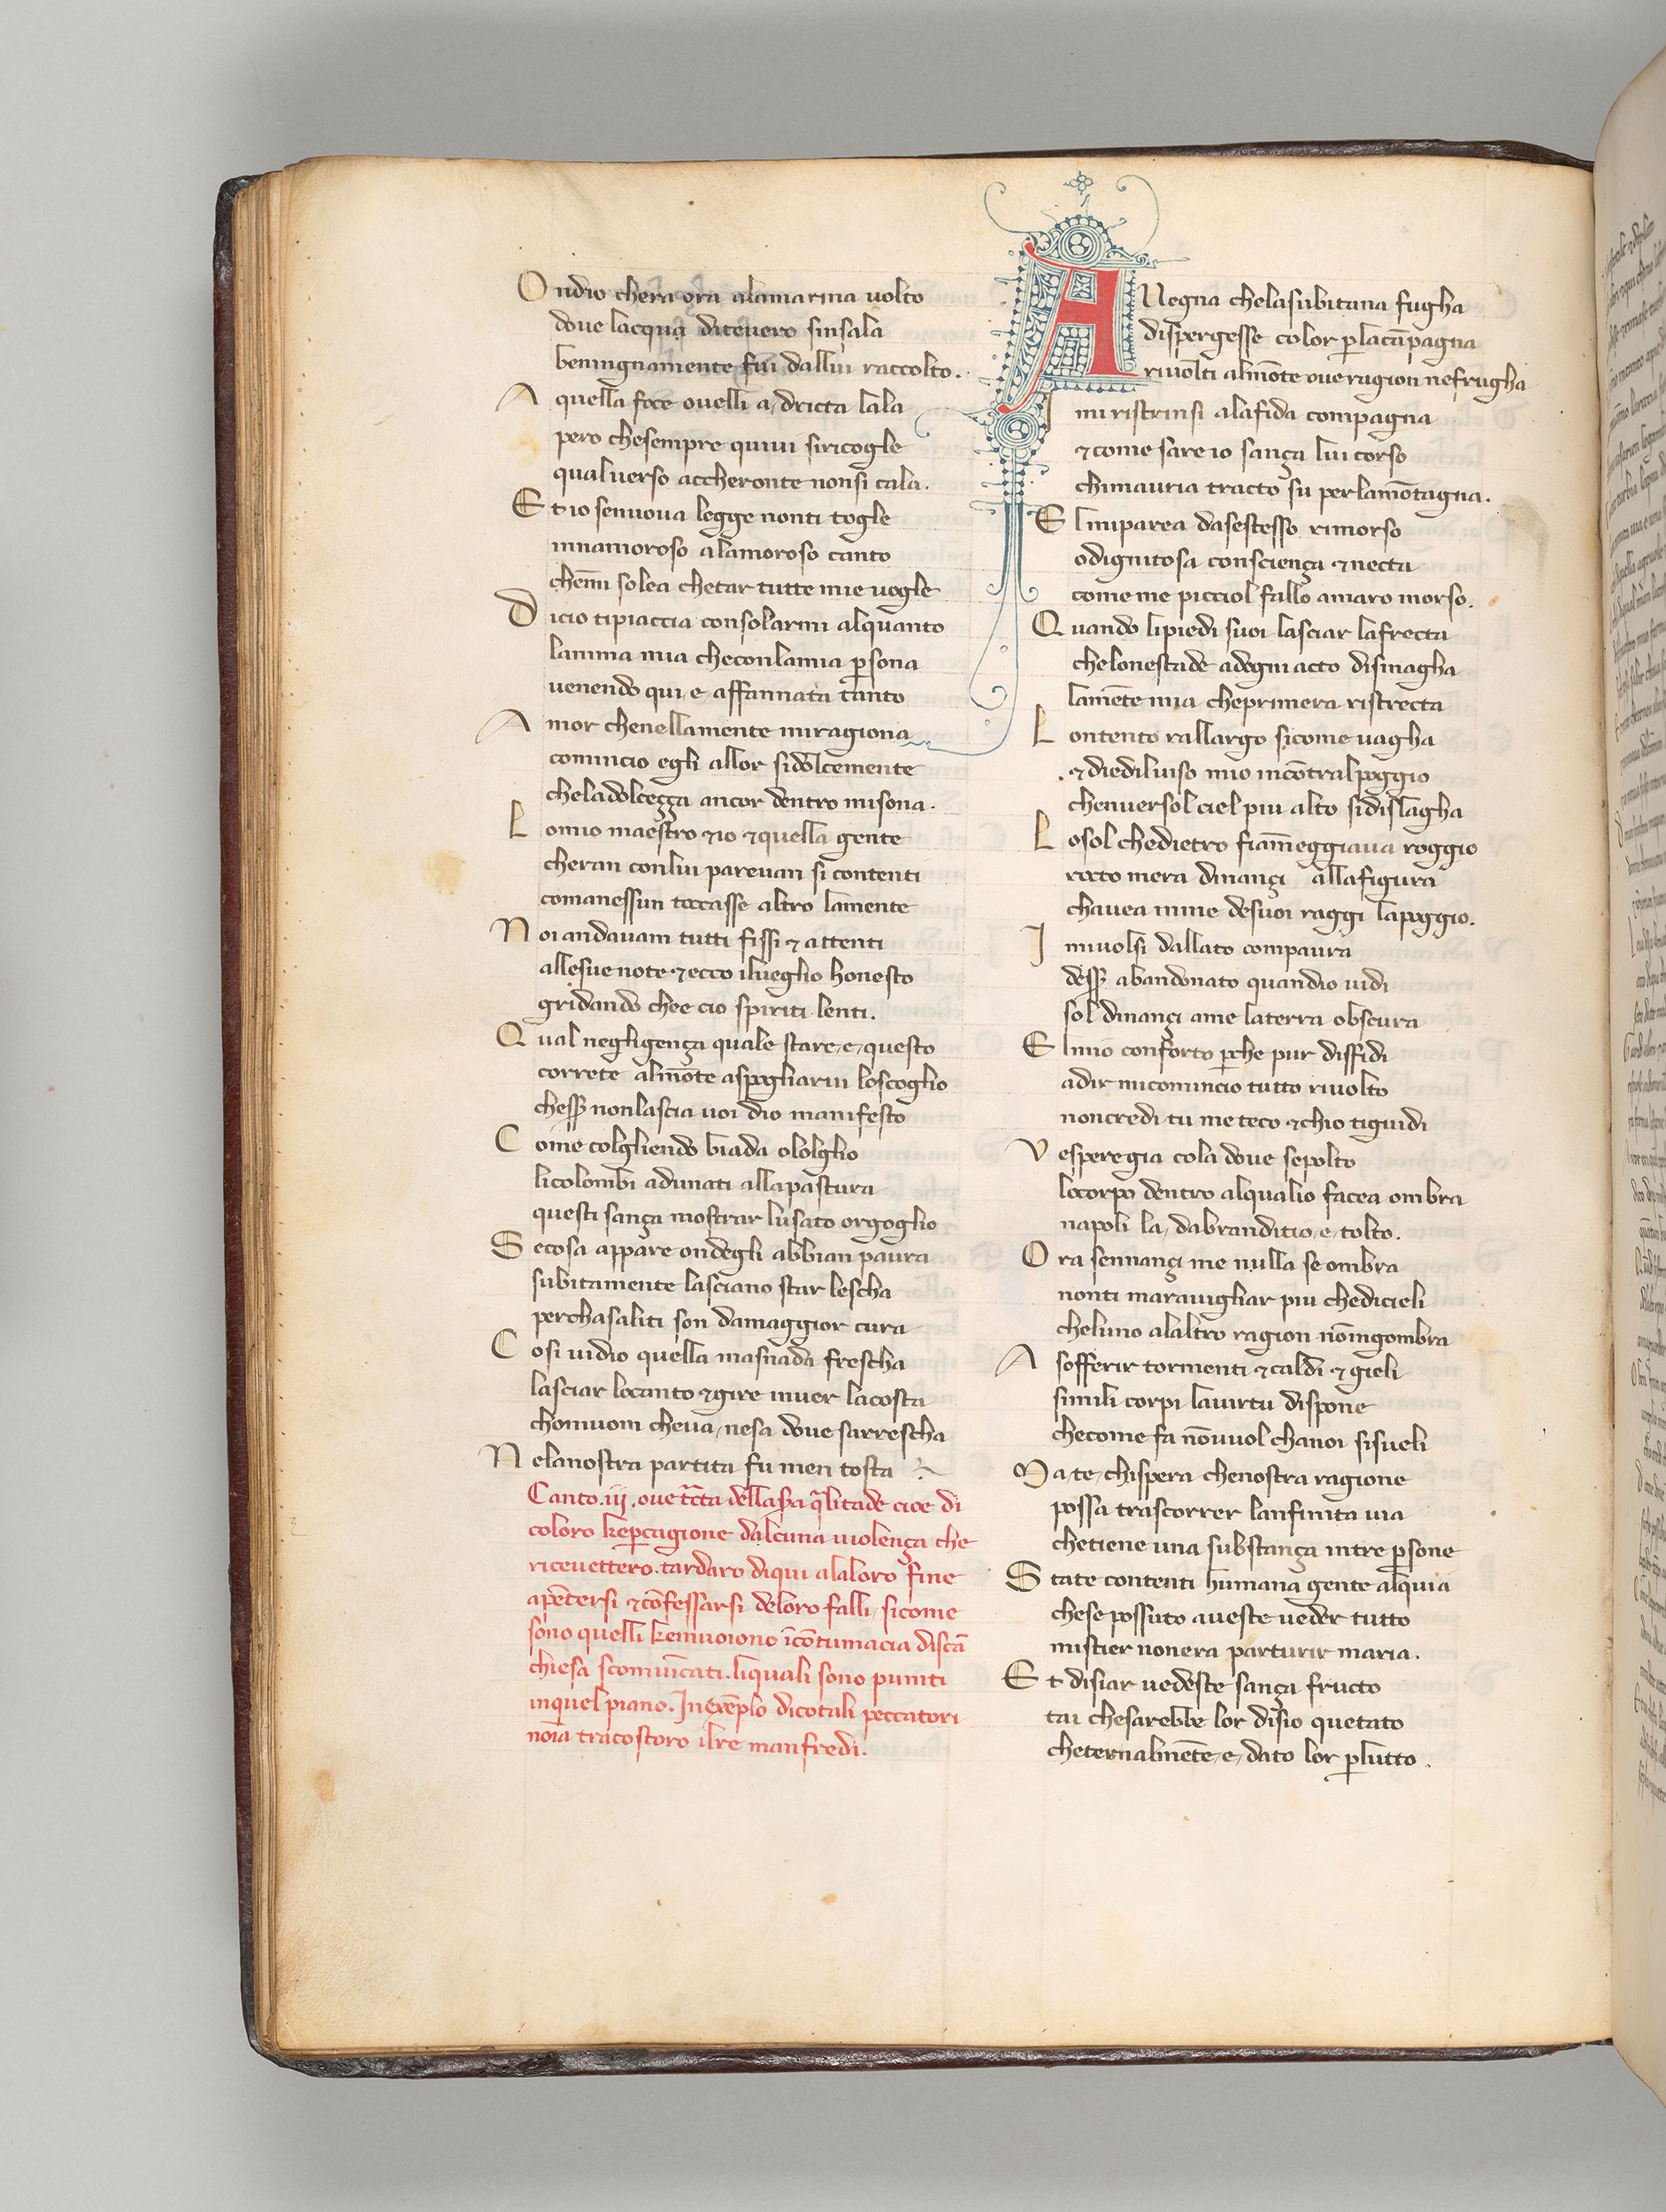 Ondio chera ora alamarina uolto
doue lacqua diteuero sinsala
beningnamente fui dallui raccolto.
A quella foce ouelli a dricta lala
pero chesempre quiui siricogle
qualuerso accheronte nonsi cala.
Et io senuoua legge nonti togle
innamoroso alamoroso canto
chēmi solea chetar tutte mie uogle
Dicio tipiaccia consolarmi alquanto
lanima mia checonlamia ꝑsona
uenendo qui e affannata tanto
Amor chenellamente miragiona
comincio egli allor sidolcemente
cheladolceçça ancor dentro misona.
Lomio maestro ⁊io ⁊quella gente
cheran conlui pareuan si contenti
comanessun toccasse altro lamente
Noi andauam tutti fissi ⁊ attenti
allesue note ⁊ecco ilueglio honesto
gridando chee cio spiriti lenti.
Qual negligença quale stare e questo
correte almōte aspogliarui loscoglio
chesser nonlascia uoi dio manifesto
Come colgliendo biada ololglio
licolombi adunati allapastura
questi sança mostrar lusato orgoglio
Secosa appare ondegli abbian paura
subitamente lasciano star lescha
perchasaliti son damaggior cura
Cosi uidio quella masnada frescha
lasciar locanto ⁊gire inuer lacosta
chomuom cheua nesa doue sarrescha
Nelanostra partita fu men tosta
Canto .iij. oue tc̄ta dellasᵃ q̄litade cioe di
coloro keꝑcagione dalcuna uiolença che
riceuettero. tardaro diqui alaloro fine
apētersi ⁊cōfessarsi deloro falli sicome
sono quelli kemuoiono īcōtumacia discā
chiesa scomūicati. liquali sono puniti
inquel piano. Inexēplo dicotali peccatori
noīa tracostoro ilre manfredi.
ANegna chelasubitana fugha
dispergesse color ꝑlacāpagna
riuolti almōte oue ragion nefrugha
I mi ristrinsi alafida compagna
⁊come sare io sança lui corso
chimauria tracto su perlamōtagna.
El miparea dasestesso rimorso
odignitosa consciença ⁊necta
come me picciol fallo amaro morso.
Quando lipiedi suoi lasciar lafrecta
chelonestade adogni acto dismagha
lamēte mia cheprimera ristrecta
Lontento rallargo sicome uagha
⁊diediluiso mio incōtralpoggio
chenuersol ciel piu alto sidislagha
Losol chedietro fiammeggiaua roggio
rocto mera dinançi allafigura
chauea inme desuoi raggi lapoggio.
I miuolsi dallato compaura
desser abandonato quandio uidi
sol dinançi ame laterra obscura
El mio conforto ꝑche pur diffidi
adir micomincio tutto riuolto
noncredi tu me teco ⁊chio tiguidi
Vesperegia cola doue sepolto
locorpo dentro alqualio facea ombra
napoli la, dabranditio e tolto.
Ora sennançi me nulla se ombra
nonti marauigliar piu chedicieli
cheluno alaltro ragion nōingombra
A sofferir tormenti ⁊caldi ⁊gieli
simili corpi lauirtu dispone
checome fa nōuuol chanoi sisueli
Mate chispera chenostra ragione
possa trascorrer lanfinita uia
chetiene una substança intre ꝑsone
State contenti humana gente alquia
chese possuto aueste ueder tutto
mistier nonera parturir maria.
Et disiar uedeste sança fructo
tai chesarebbe lor disio quetato
cheternalmēte e dato lor ꝑlutto.